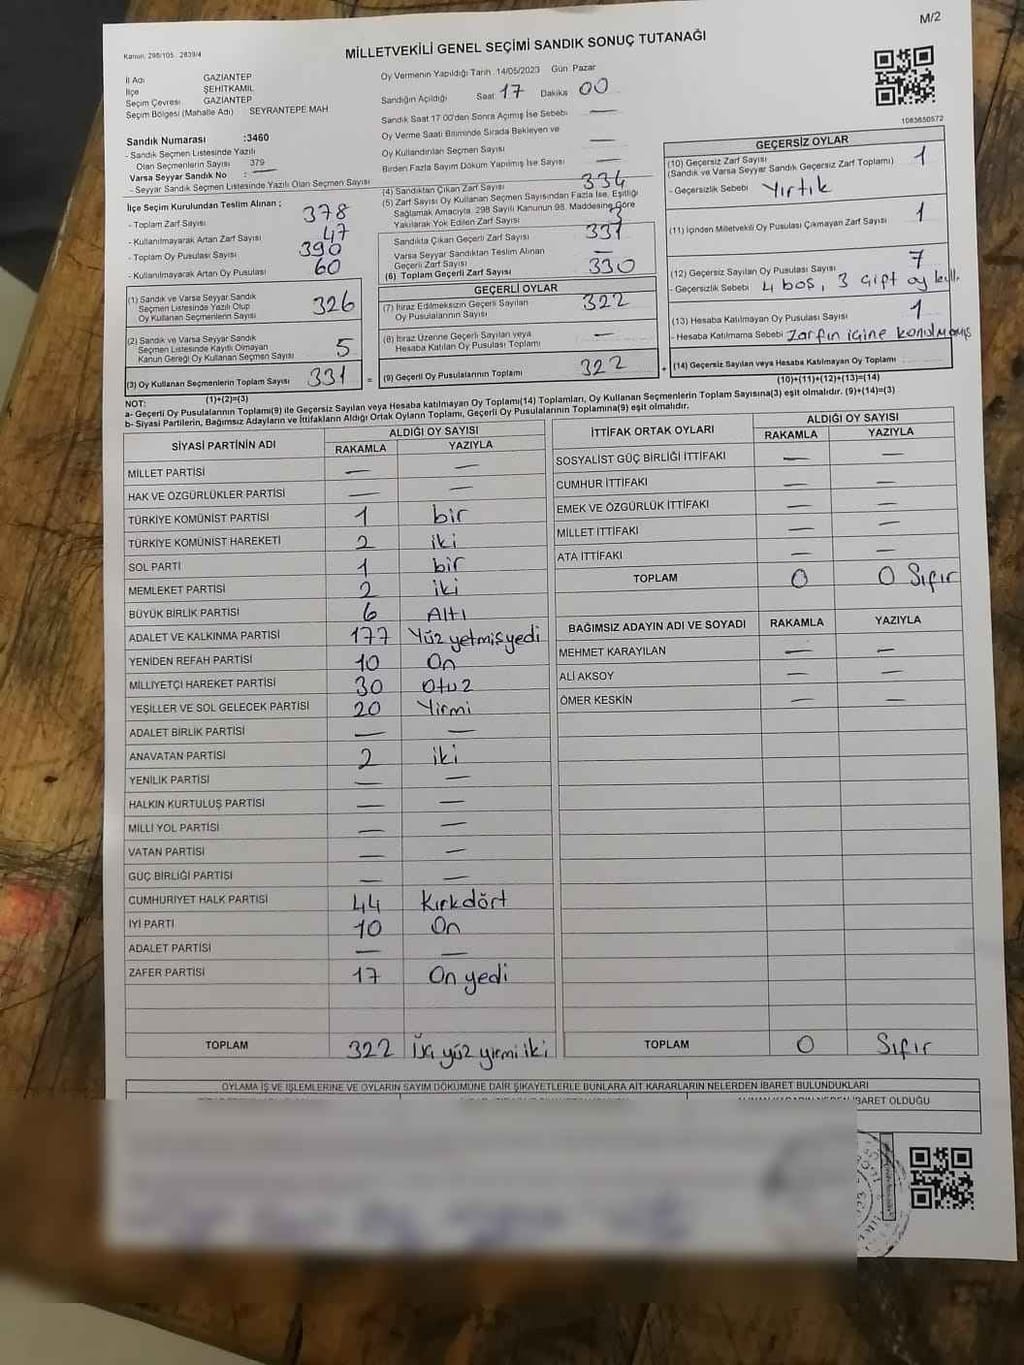 M/2
Kanun: 298/105 . 2839/4
MİLLETVEKİLİ GENEL SEÇİMİ SANDIK SONUÇ TUTANAĞI
İl Adı GAZİANTEP
İlçe ŞEHİTKAMİL
Seçim Çevresi GAZİANTEP
Seçim Bölgesi (Mahalle Adı) SEYRANTEPE MAH
Sandık Numarası :3460
- Sandık Seçmen Listesinde Yazılı
Olan Seçmenlerin Sayısı 379
Varsa Seyyar Sandık No : —
- Seyyar Sandık Seçmen Listesinde Yazılı Olan Seçmen Sayısı
Oy Vermenin Yapıldığı Tarih 14/05/2023 Gün Pazar
Sandığın Açıldığı Saat 17 Dakika 00
Sandık Saat 17:00'den Sonra Açımış İse Sebebi —
Oy Verme Saati Bitiminde Sırada Bekleyen ve
Oy Kullandırılan Seçmen Sayısı —
Birden Fazla Sayım Döküm Yapılmış İse Sayısı —
1083650572
İlçe Seçim Kurulundan Teslim Alınan ;
- Toplam Zarf Sayısı 378
- Kullanılmayarak Artan Zarf Sayısı 47
- Toplam Oy Pusulası Sayısı 390
- Kullanılmayarak Artan Oy Pusulası 60
(1) Sandık ve Varsa Seyyar Sandık
Seçmen Listesinde Yazılı Olup
Oy Kullanan Seçmenlerin Sayısı 326
(2) Sandık ve Varsa Seyyar Sandık
Seçmen Listesinde Kayıtlı Olmayan
Kanun Gereği Oy Kullanan Seçmen Sayısı 5
(3) Oy Kullanan Seçmenlerin Toplam Sayısı 331
(1)+(2)=(3)
(4) Sandıktan Çıkan Zarf Sayısı 334
(5) Zarf Sayısı Oy Kullanan Seçmen Sayısından Fazla İse, Eşitliği
Sağlamak Amacıyla, 298 Sayılı Kanunun 98. Maddesine Göre
Yakılarak Yok Edilen Zarf Sayısı 3
Sandıkta Çıkan Geçerli Zarf Sayısı 331
Varsa Seyyar Sandıktan Teslim Alınan
Geçerli Zarf Sayısı —
(6) Toplam Geçerli Zarf Sayısı 330
GEÇERLİ OYLAR
(7) İtiraz Edilmeksizin Geçerli Sayılan
Oy Pusulalarının Sayısı 322
(8) İtiraz Üzerine Geçerli Sayılan veya
Hesaba Katılan Oy Pusulası Toplamı —
= (9) Geçerli Oy Pusulalarının Toplamı 322
GEÇERSİZ OYLAR
(10) Geçersiz Zarf Sayısı
(Sandık ve Varsa Seyyar Sandık Geçersiz Zarf Toplamı) 1
- Geçersizlik Sebebi Yırtık
(11) İçinden Milletvekili Oy Pusulası Çıkmayan Zarf Sayısı 1
(12) Geçersiz Sayılan Oy Pusulası Sayısı 7
- Geçersizlik Sebebi 4 boş, 3 çift oy
(13) Hesaba Katılmayan Oy Pusulası Sayısı 1
- Hesaba Katılmama Sebebi Zarfın içine konulmamış
+ (14) Geçersiz Sayılan veya Hesaba Katılmayan Oy Toplamı
(10)+(11)+(12)+(13)=(14)
NOT:
a- Geçerli Oy Pusulalarının Toplamı(9) ile Geçersiz Sayılan veya Hesaba katılmayan Oy Toplamı(14) Toplamları, Oy Kullanan Seçmenlerin Toplam Sayısına(3) eşit olmalıdır. (9)+(14)=(3)
b- Siyasi Partilerin, Bağımsız Adayların ve İttifakların Aldığı Ortak Oyların Toplamı, Geçerli Oy Pusulalarının Toplamına(9) eşit olmalıdır.
SİYASİ PARTİNİN ADI ALDIĞI OY SAYISI
RAKAMLA YAZIYLA
MİLLET PARTİSİ — —
HAK VE ÖZGÜRLÜKLER PARTİSİ — —
TÜRKİYE KOMÜNİST PARTİSİ 1 bir
TÜRKİYE KOMÜNİST HAREKETİ 2 iki
SOL PARTİ 1 bir
MEMLEKET PARTİSİ 2 iki
BÜYÜK BİRLİK PARTİSİ 6 Altı
ADALET VE KALKINMA PARTİSİ 177 Yüz yetmiş yedi
YENİDEN REFAH PARTİSİ 10 On
MİLLİYETÇİ HAREKET PARTİSİ 30 Otuz
YEŞİLLER VE SOL GELECEK PARTİSİ 20 Yirmi
ADALET BİRLİK PARTİSİ — —
ANAVATAN PARTİSİ 2 iki
YENİLİK PARTİSİ — —
HALKIN KURTULUŞ PARTİSİ — —
MİLLİ YOL PARTİSİ — —
VATAN PARTİSİ — —
GÜÇ BİRLİĞİ PARTİSİ — —
CUMHURİYET HALK PARTİSİ 44 Kırkdört
İYİ PARTİ 10 On
ADALET PARTİSİ — —
ZAFER PARTİSİ 17 On yedi
TOPLAM 322 yüz yirmi iki
İTTİFAK ORTAK OYLARI ALDIĞI OY SAYISI
RAKAMLA YAZIYLA
SOSYALİST GÜÇ BİRLİĞİ İTTİFAKI — —
CUMHUR İTTİFAKI — —
EMEK VE ÖZGÜRLÜK İTTİFAKI — —
MİLLET İTTİFAKI — —
ATA İTTİFAKI — —
TOPLAM 0 0 Sıfır
BAĞIMSIZ ADAYIN ADI VE SOYADI RAKAMLA YAZIYLA
MEHMET KARAYILAN — —
ALİ AKSOY — —
ÖMER KESKİN — —
TOPLAM 0 Sıfır
OYLAMA İŞ VE İŞLEMLERİNE VE OYLARIN SAYIM DÖKÜMÜNE DAİR ŞİKAYETLERLE BUNLARA AİT KARARLARIN NELERDEN İBARET BULUNDUKLARI
İBARET OLDUĞU